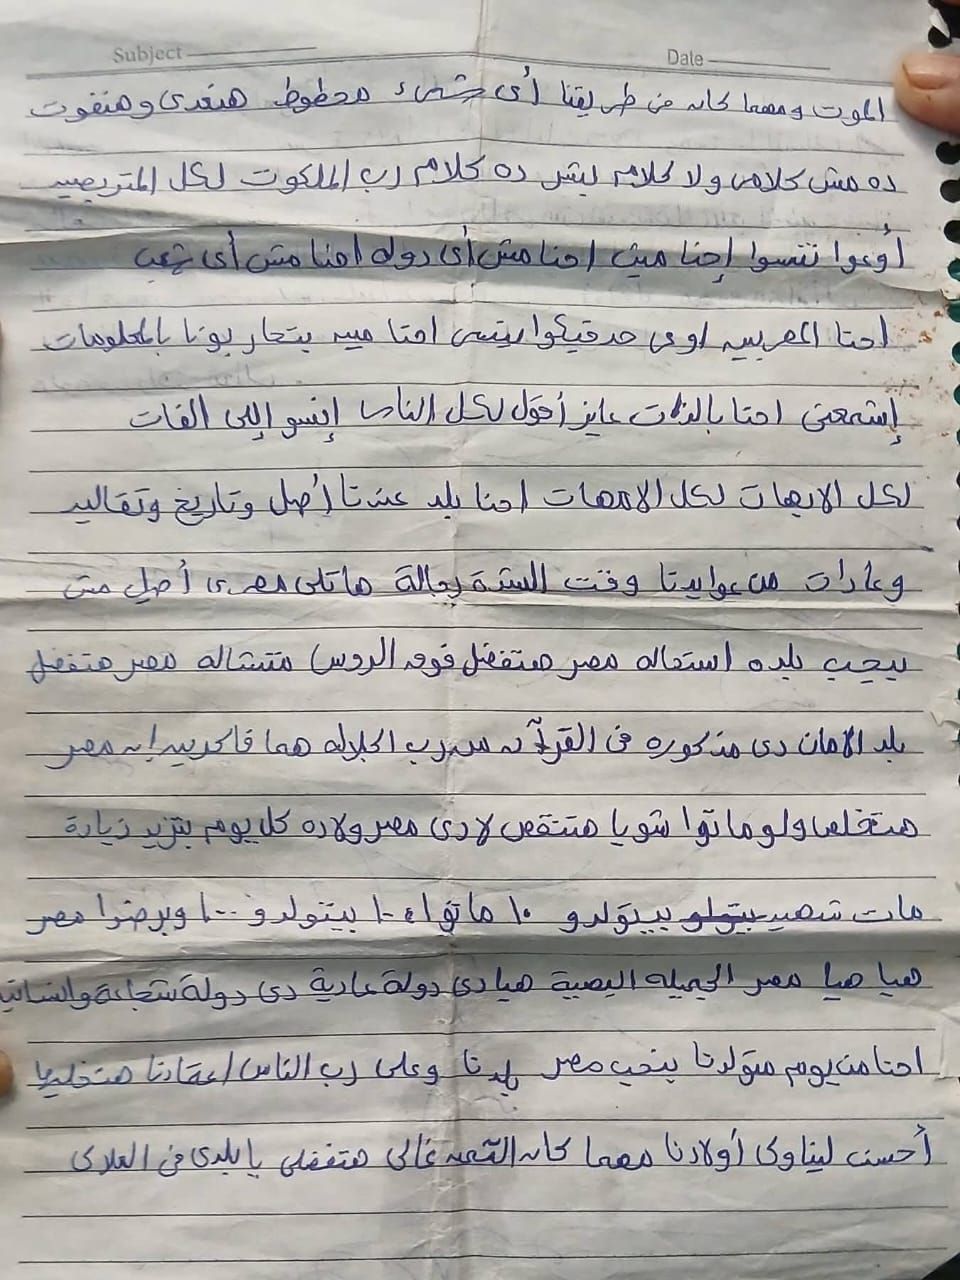 Subject
Date
الموت ومهما كانه من طريقنا أى شىء محطوط هنعدى وهنفوت
ده مش كلامى ولا كلام بشر ده كلام رب الملكوت لكل المتربصيه
أوعوا تنسوا إحنا ميه احنا مش أى دوله احنا مش أى شعب
احنا المصرييه اوى حد فيكوا ينسى احنا ميه بتحاربونا بالمعلومات
إشمعنى احنا بالذات عايز أقول لكل الناس إنسو اللى الفات
لكل الابهات لكل الامهات احنا بلد عندنا أصل وتاريخ وتقاليد
وعادات من عوايدنا وقت الشدة رجالة هاتلى مصرى أصلى مش
بيحب بلده استحاله مصر هتفضل فوق الروس متشاله مصر هتفضل
بلد الامان دى مذكوره فى القرآنه مه رب الجلاله هما فاكرييه إنه مصر
هتخلص ولو ماتوا شويا هتنقص لا دى مصر ولاده كل يوم بتزيد زيادة
مات شهيد بيتولدو ١٠ ماتوا ١٠ بيتولدو ١٠٠ وبرضوا مصر
هيا هيا مصر الجميله البهية هيا دى دولة عادية دى دولة شجاعة وانسانيه
احنا من يوم متولدنا بنحب مصر بلدنا وعلى رب الناس اعتمادنا هتخليها
أحسن لينا ولى أولادنا مهما كانه التمنه غالى هتفضلى يا بلدى فى العلالى